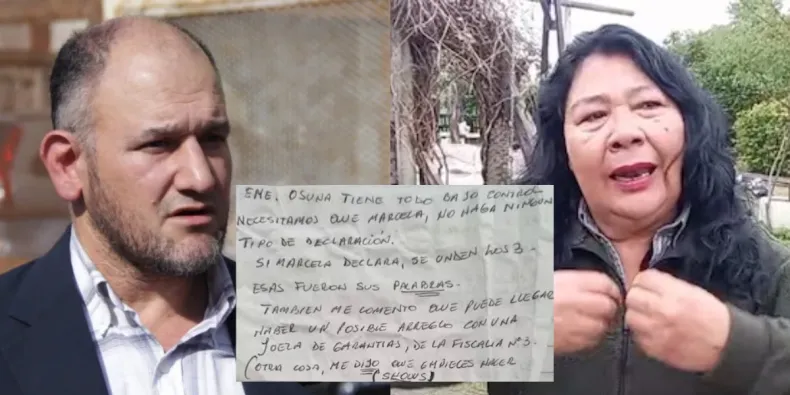 EME. OSUNA TIENE TODO BAJO CONTROL
NECESITAMOS QUE MARCELA, NO HAGA NINGUN
TIPO DE DECLARACIÓN.
SI MARCELA DECLARA, SE UNDEN LOS 3-
ESAS FUERON SUS PALABRAS.
TAMBIEN ME COMENTO QUE PUEDE LLEGAR
HABER UN POSIBLE ARREGLO CON UNA
JUEZA DE GARANTIAS, DE LA FISCALIA Nº3.
(OTRA COSA, ME DIJO QUE EMPIECES HACER
(SHOWS)